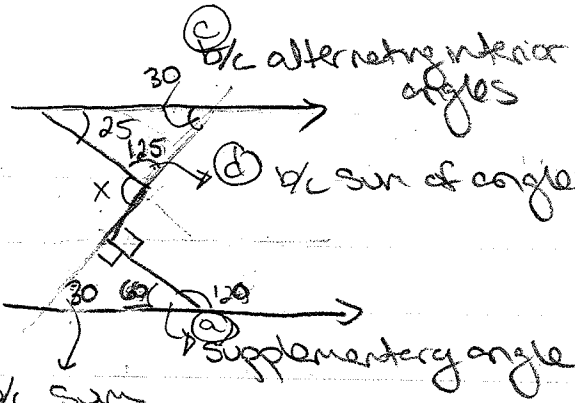 ⓒ
30 b/c alternating interior
angles
25
125
ⓓ b/c sum of angle
x
30 60 120
ⓐ
supplementary angle
b/c sum